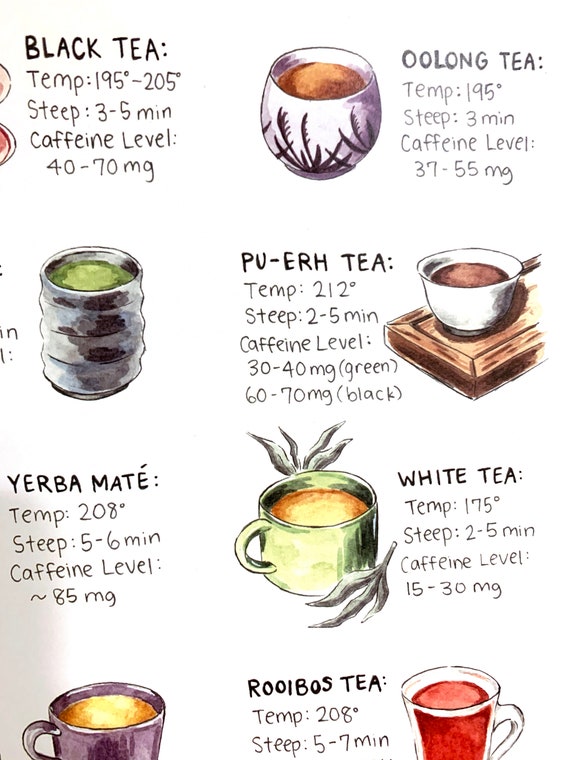 BLACK TEA:
Temp: 195°-205°
Steep: 3-5 min
Caffeine Level:
40-70 mg
OOLONG TEA:
Temp: 195°
Steep: 3 min
Caffeine Level:
37-55 mg
PU-ERH TEA:
Temp: 212°
Steep: 2-5 min
Caffeine Level:
30-40mg (green)
60-70mg (black)
YERBA MATÉ:
Temp: 208°
Steep: 5-6 min
Caffeine Level:
~ 85 mg
WHITE TEA:
Temp: 175°
Steep: 2-5 min
Caffeine Level:
15-30 mg
ROOIBOS TEA:
Temp: 208°
Steep: 5-7 min